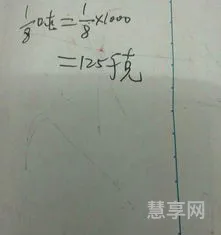 1/8吨=1/8×1000
=125千克
慧享网